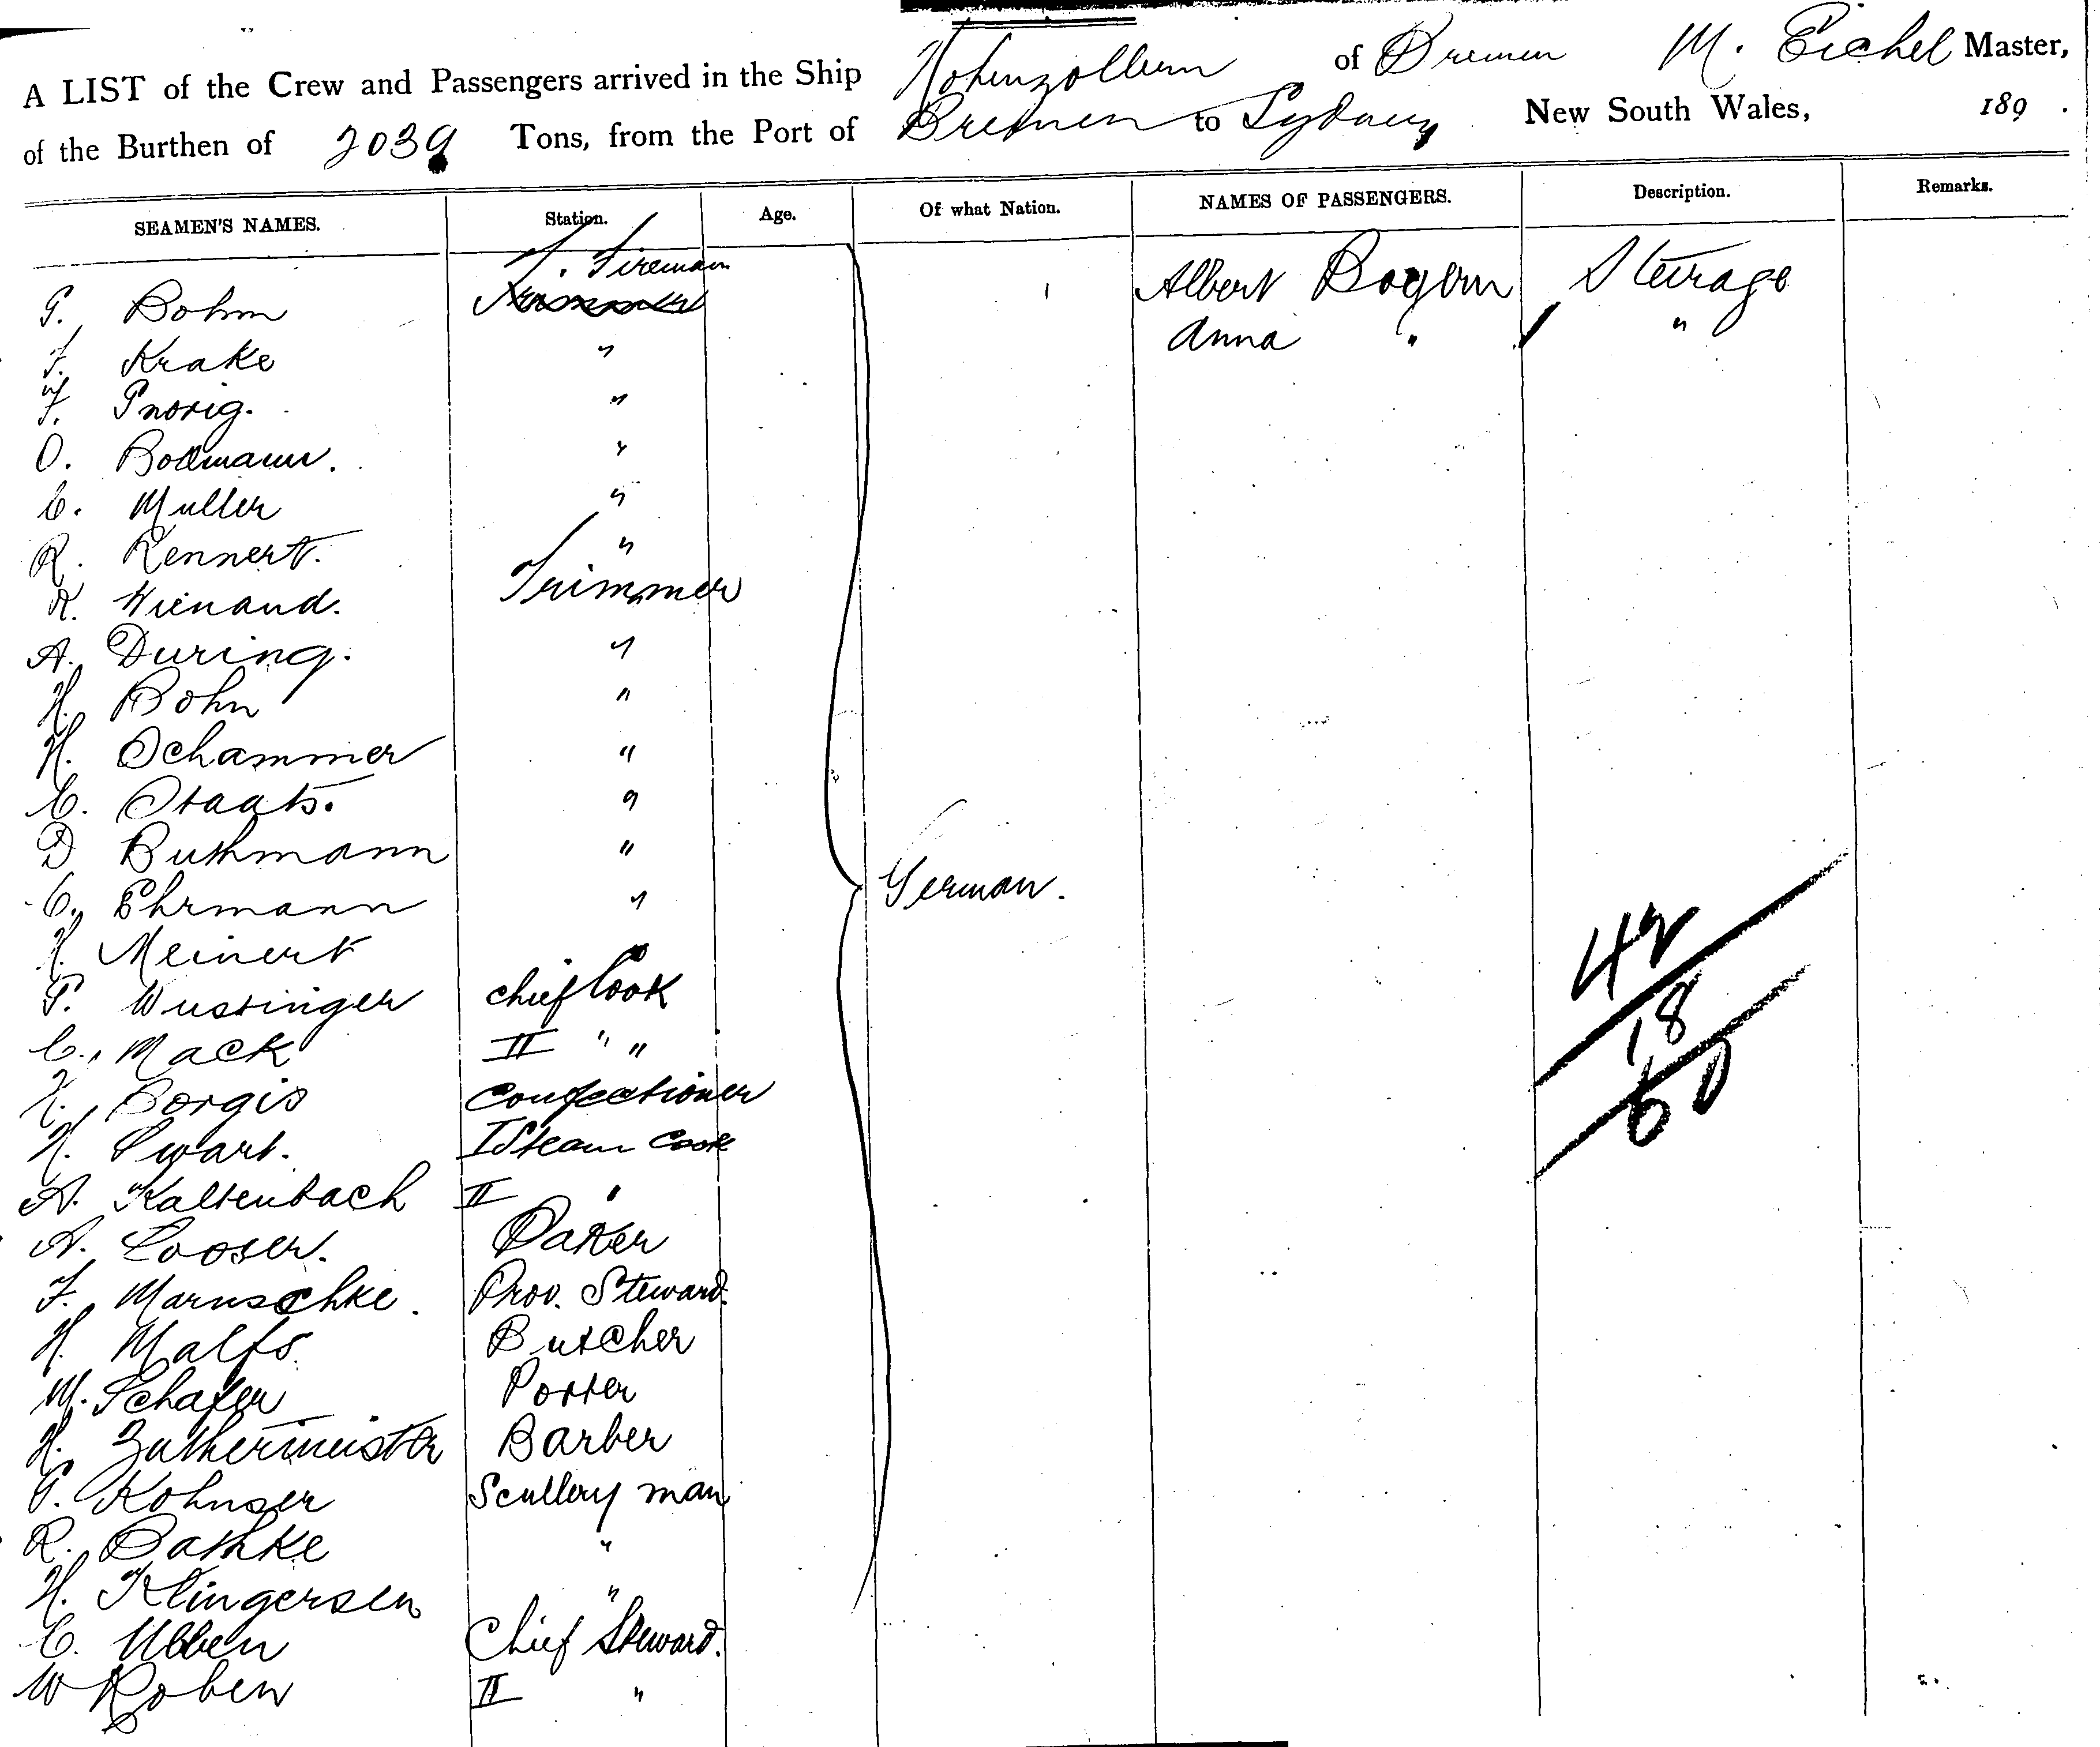 A LIST of the Crew and Passengers arrived in the Ship Hohenzollern of Bremen M. Eichel Master,
of the Burthen of 2039 Tons, from the Port of Bremen to Sydney New South Wales, 189 .
SEAMEN'S NAMES. Station. Age. Of what Nation. NAMES OF PASSENGERS. Description. Remarks.
F. Fireman
G. Bohm Trimmer Albert Bogern Steirage
F. Krake " Anna " "
F. Pnorig. "
O. Bodmann. "
C. Muller "
R. Rennert. "
K. Wienand. Trimmer
A. During. "
H. Bohn "
H. Schammer "
C. Staats. "
D Buthmann "
C. Ehrmann " German.
H. Meinert "
P. Wussinger chief Cook
C. Mack II " "
H. Borgis Confectioner
H. Swart. I Steam Cook
A. Kaltenbach II "
A. Looser. Baker
F. Maruschke. Prov. Steward.
H. Malfs Butcher
M. Schafer Porter
H. Zuthermeister Barber
P. Kohnser Scullery man
R. Bathke "
H. Klingersen "
C. Ubben Chief Steward.
W Roben II "
42
18
60